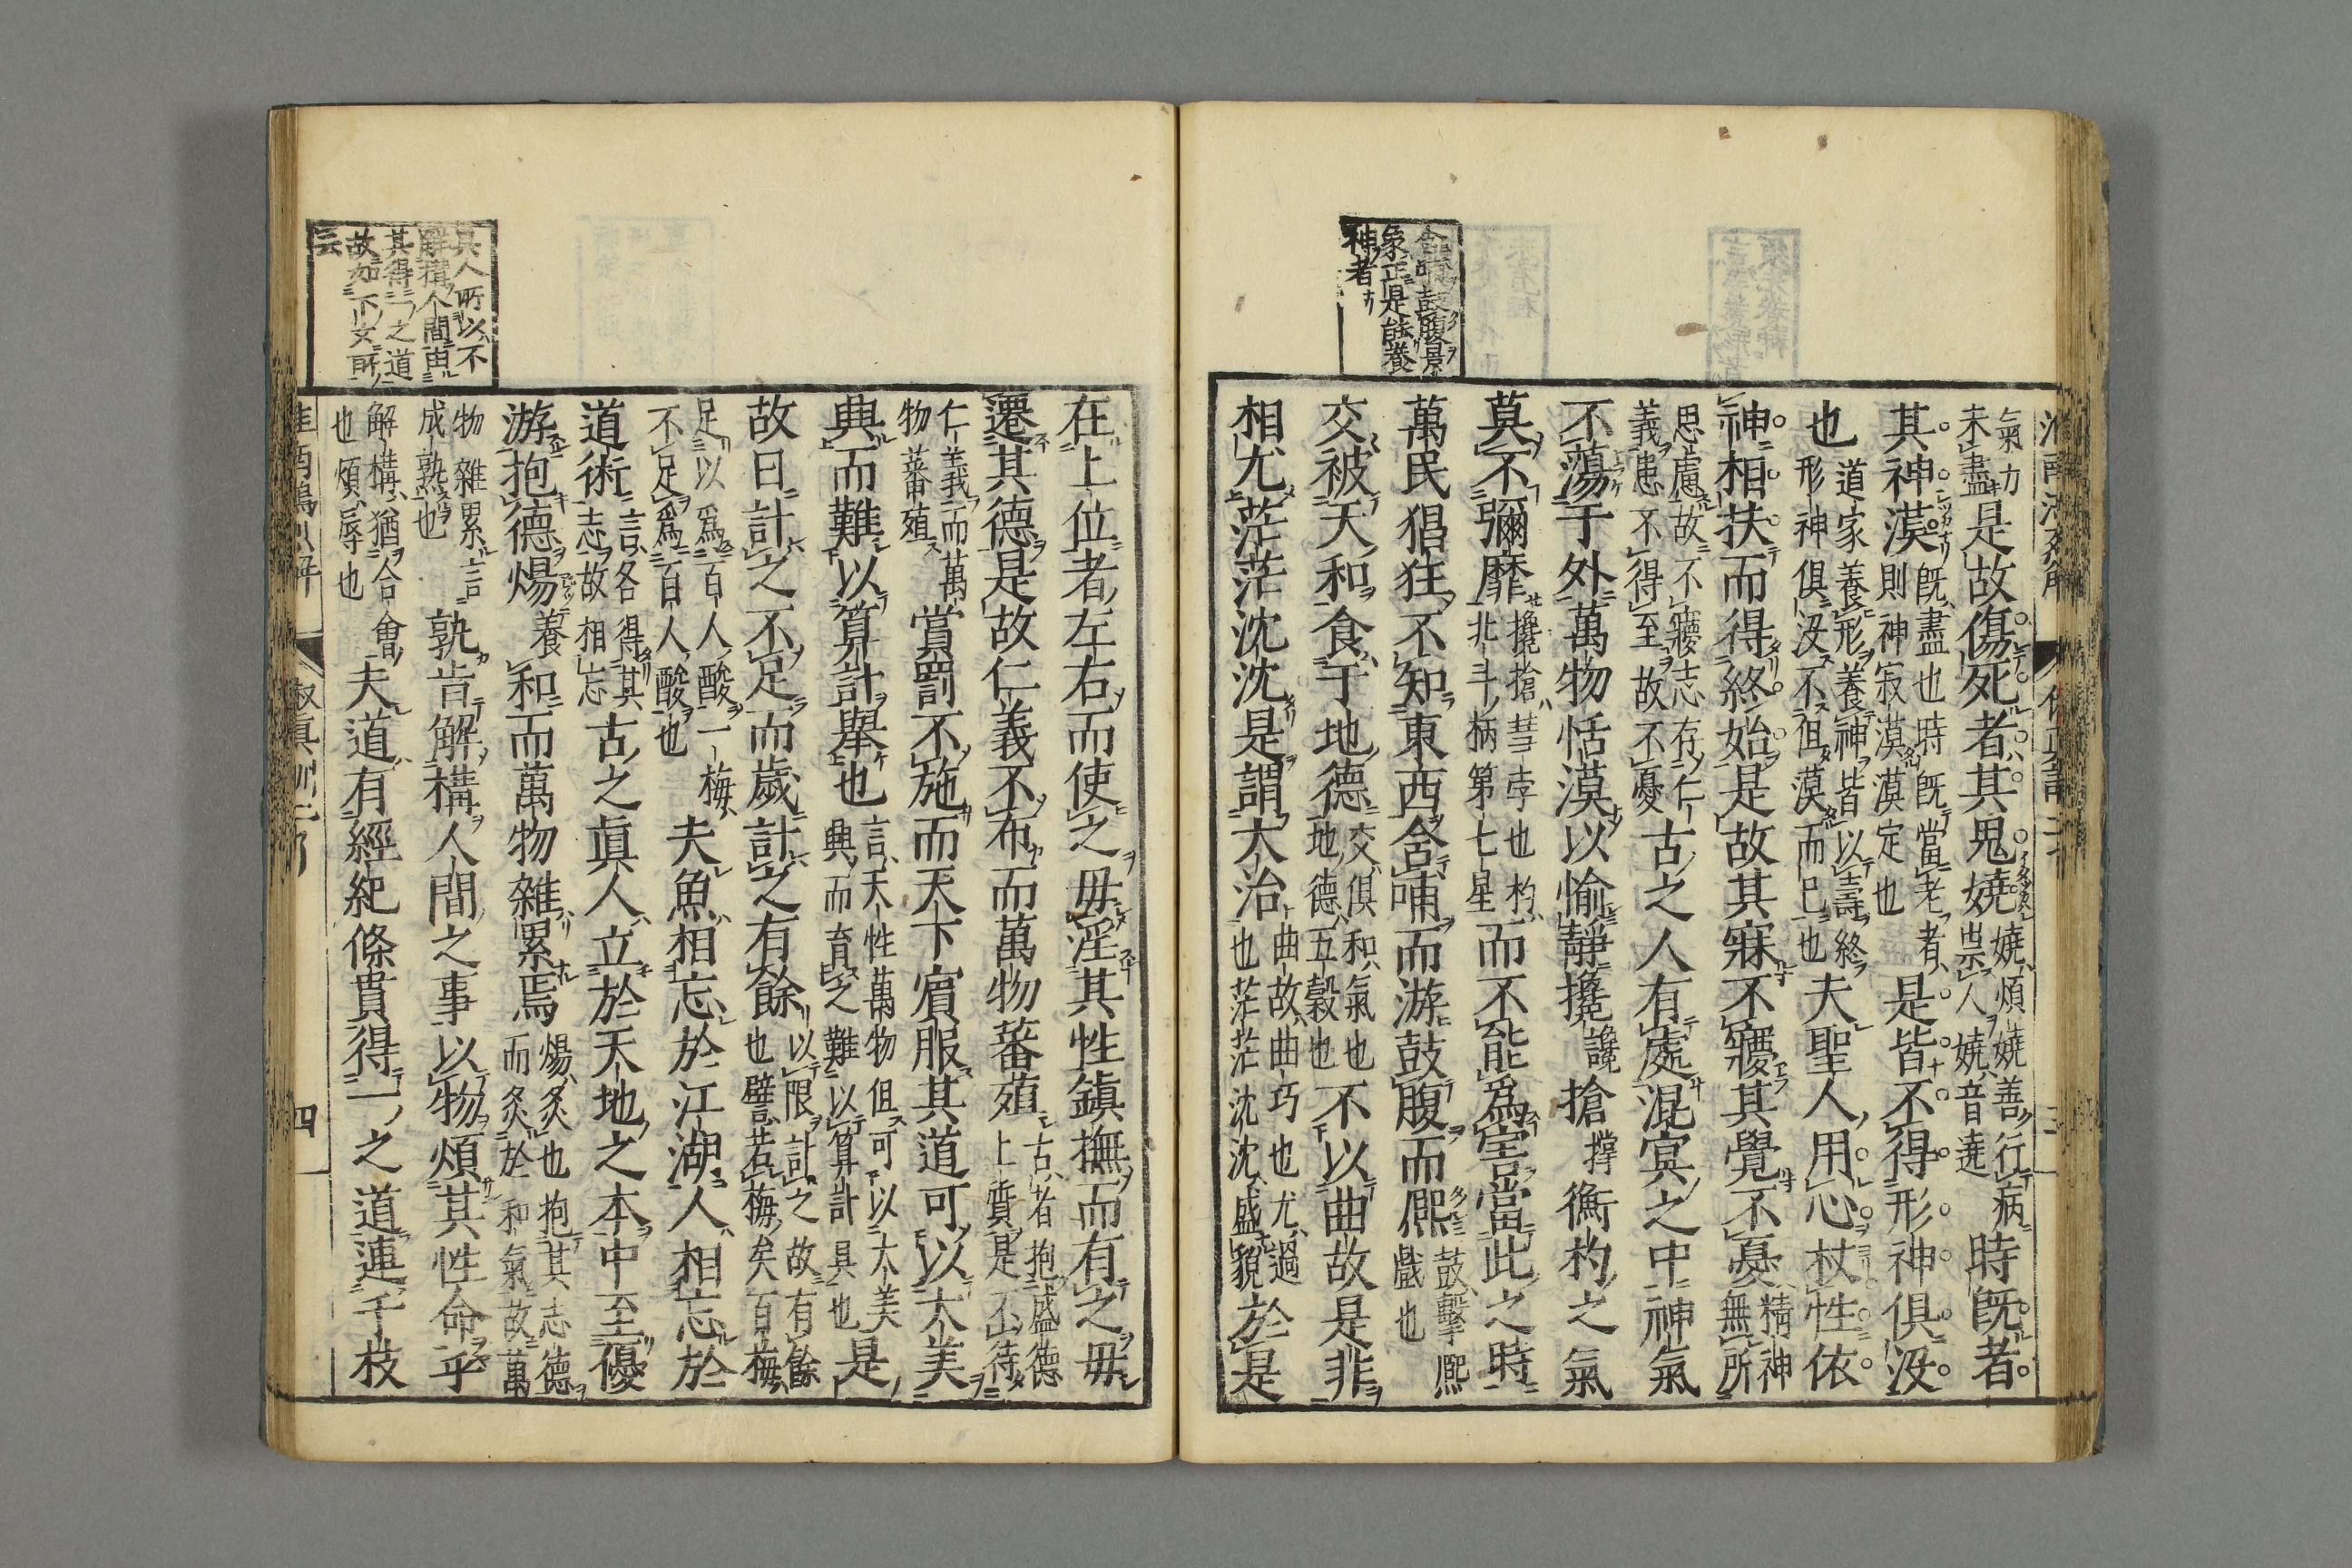 氣力
未盡是故傷死者其鬼嬈嬈煩嬈善行病
祟人嬈音遶時既者
其神漠既盡也時既當老者
則神寂漠漠定也是皆不得形神俱没
也道家養形養神皆以壽終
形神俱没不徂漠而已也夫聖人用心杖性依
神相扶而得終始是故其寐不㝱其覺不憂精神
無所
思慮故不㝱志存仁
義患不得至故不憂古之人有處混冥之中神氣
不蕩于外萬物恬漠以愉靜攙讒搶撑衡杓之氣
莫不彌靡攙搶彗孛也杓
北斗柄第七星而不能爲害當此之時
萬民猖狂不知東西含哺而游鼓腹而熈鼓擊熈
戲也
交被天和食于地德交俱和氣也
地德五穀也不以曲故是非
相尤茫茫沈沈是謂大治曲故曲巧也尤過
也茫茫沈沈盛貌於是
含哺鼓腹景
象正是能養
神者
在上位者左右而使之毋淫其性鎭撫而有之毋
遷其德是故仁義不布而萬物蕃殖古者抱盛德
上質是不待
仁義而萬
物蕃殖賞罰不施而天下賔服其道可以大美
興而難以算計舉也言天性萬物但可以大美
興而育之難以算計具也是
故日計之不足而歲計之有餘以限計之故有餘
也譬若梅矣百梅
足以爲百人酸一梅
不足爲百人酸也夫魚相忘於江湖人相忘於
道術言各得其
志故相忘古之眞人立於天地之本中至優
游抱德煬養和而萬物雜累焉煬炙也抱其志德
而炙於和氣故萬
物雜累言
成熟也孰肯解構人間之事以物煩其性命乎
解構猶合會
也煩辱也夫道有經紀條貫得一之道連千枝
其人所以不
解構人間由
其得一之道
故如下文所
云
四